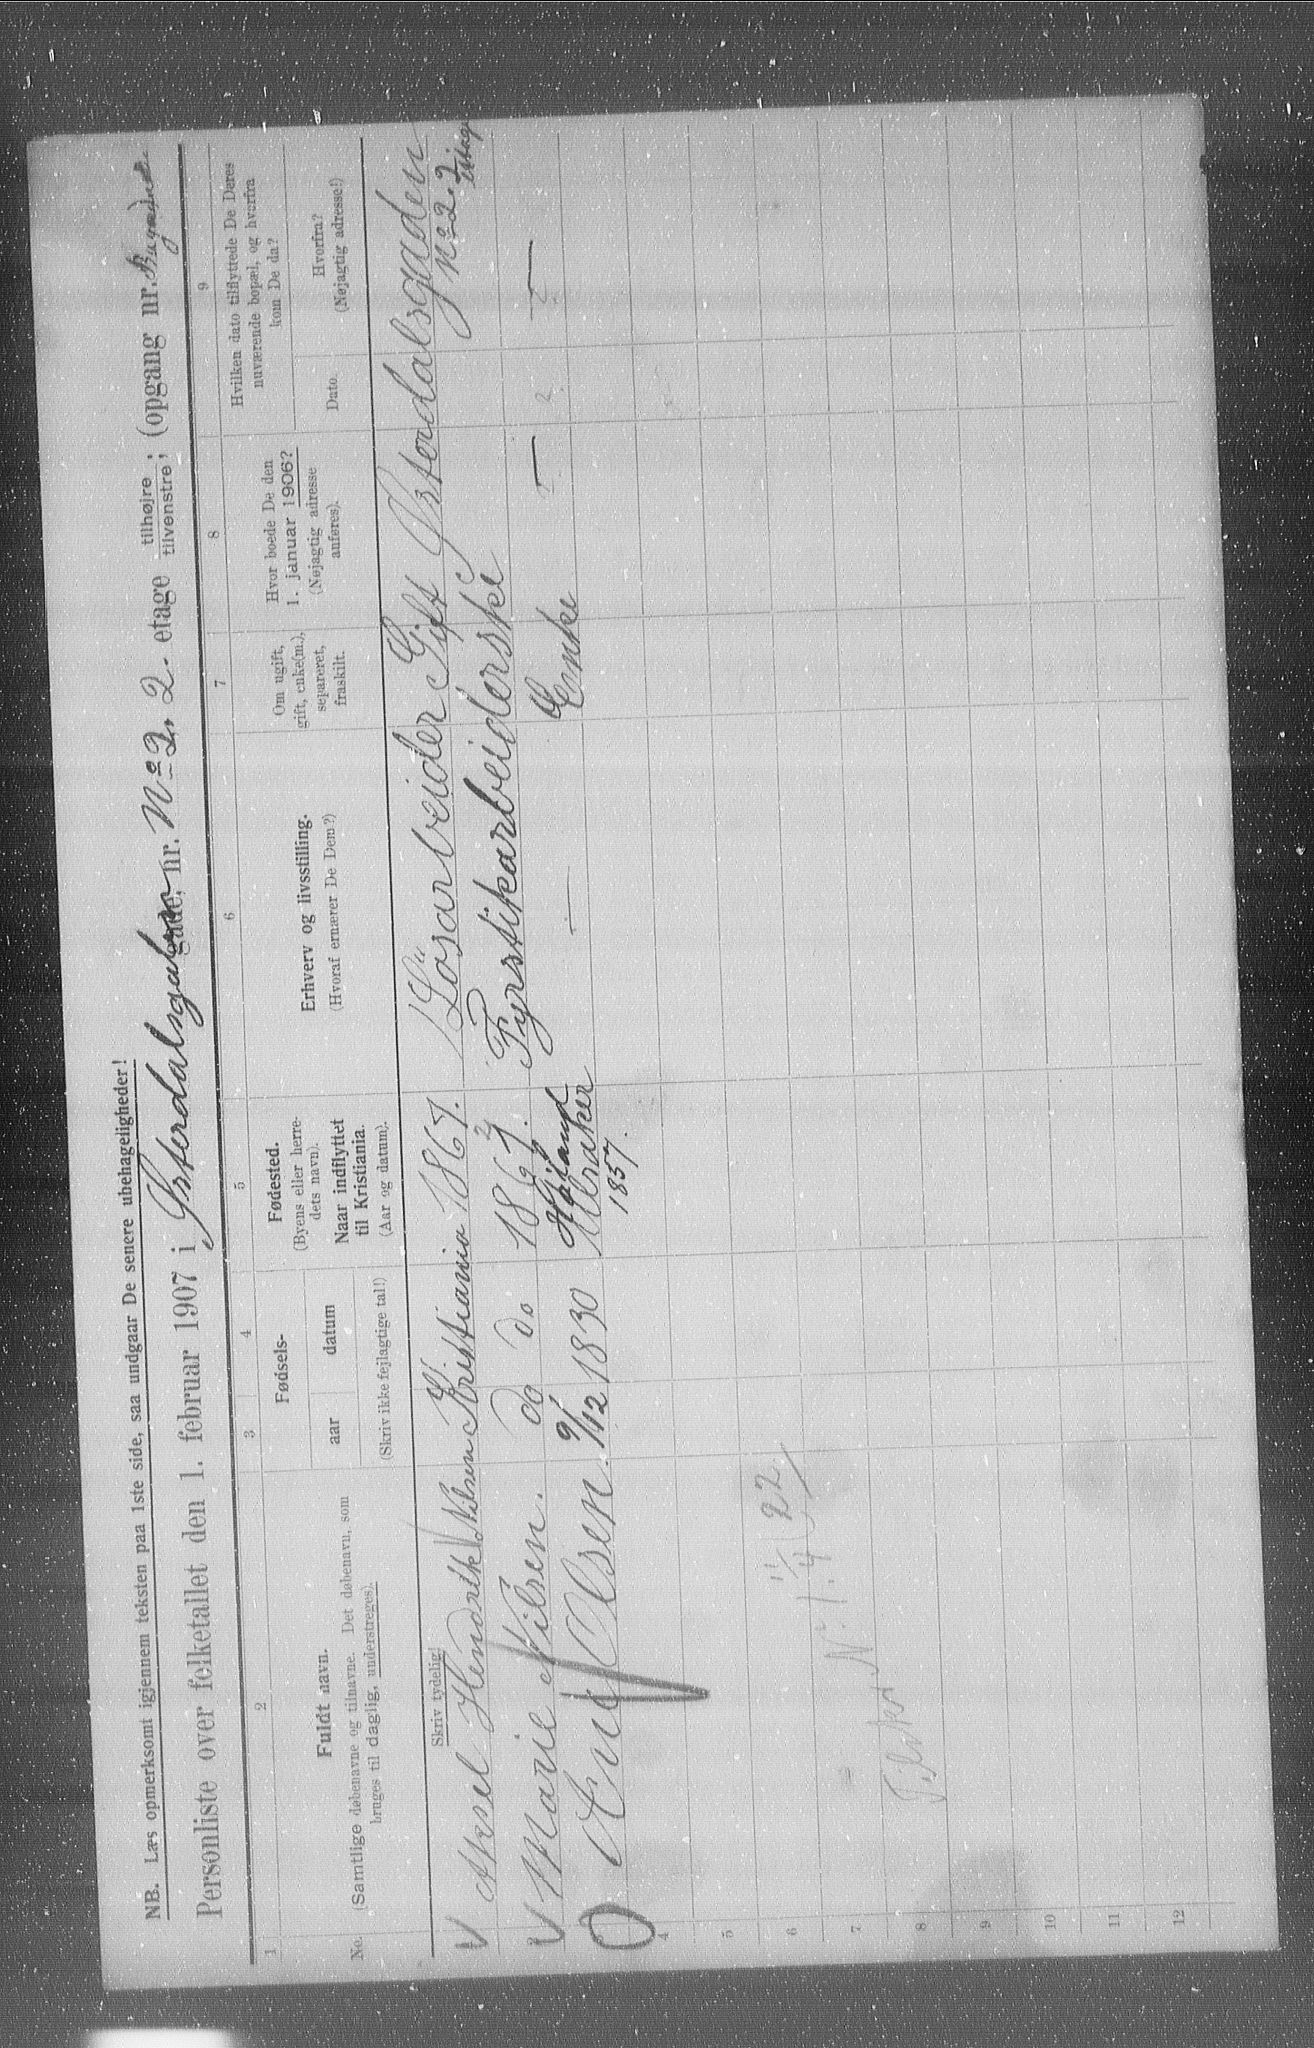 NB. Læs opmerksomt igjennem teksten paa 1ste side, saa undgaar De senere ubehageligheder!
Personliste over folketallet den 1. februar 1907 i Østerdalsgaden gade, nr. No 2. 2. etage tilhøjre, tilvenstre; (opgang nr.
1 2 3 4 5 6 7 8 9
No.
Fuldt navn.
(Samtlige døbenavne og tilnavne. Det døbenavn, som
bruges til daglig, understreges).
Skriv tydelig!
Fødsels-
aar datum
(Skriv ikke fejlagtige tal!)
Fødested.
(Byens eller herre-
dets navn).
Naar indflyttet
til Kristiania.
(Aar og datum).
Erhverv og livsstilling.
(Hvoraf ernærer De Dem?)
Om ugift,
gift, enke(m.),
separeret,
fraskilt.
Hvor boede De den
1. januar 1906?
(Nøjagtig adresse
anføres).
Hvilken dato tilflyttede De Deres
nuværende bopæl, og hvorfra
kom De da?
Dato.
Hvorfra?
(Nøjagtig adresse!)
Axsel Hendrik Nilsen Kristiania 1867. Lösarbeider Gift Østerdalsgaden
No 2. 2
Marie Nilsen. do do 1867. Fyrstikarbeiderske
Olsen. 9/12 1830 Høland
Ulsaker
1857. — Enke — —
4
5
6
7
8
9
10
11
12
No 1. 1/4 22